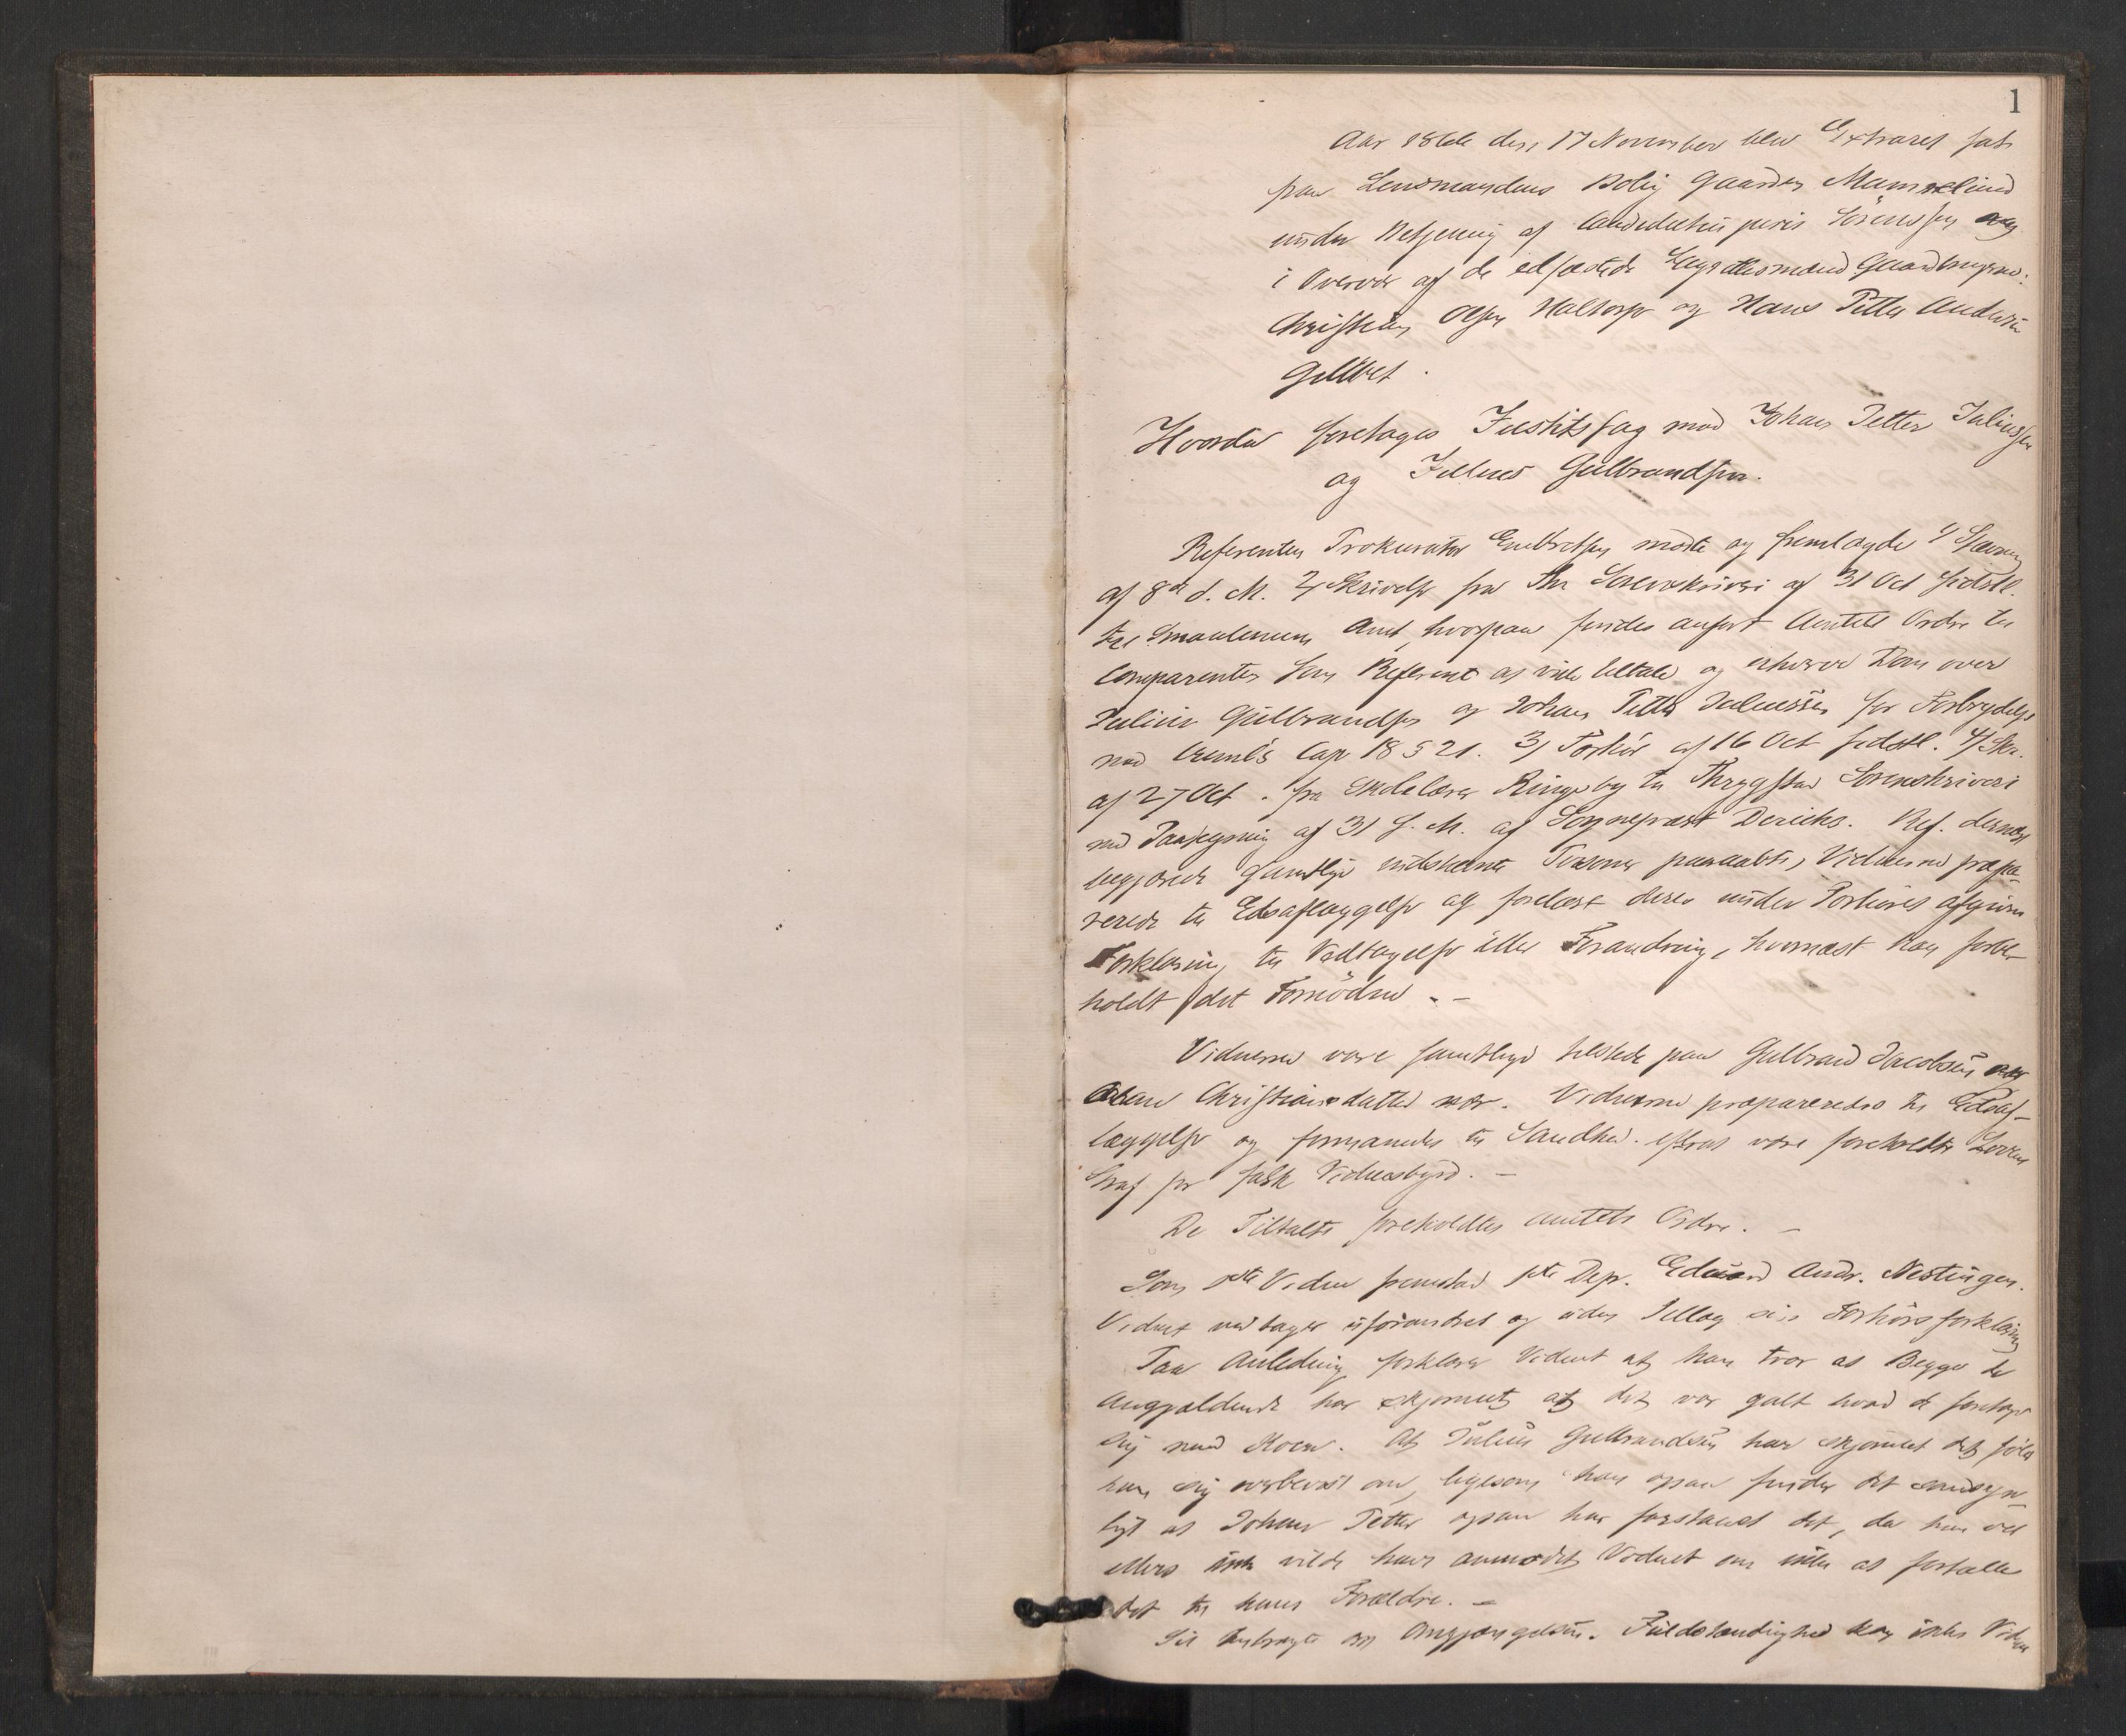 1
Aar 1866 den 17 November blev Extraret sat
paa Lensmandens Bolig Gaarden Mamrelund
under Betjening af Candidatus juris Sörenssen og
i Overvær af de edfæstede Laugrettesmænd Gaardbrugerne:
Christian Olsen Haltorp og Hans Petter Andersen
Hvorda foretages Justitssag mod Johan Petter Juliussen
og Julius Gulbrandsen.
Referenten Prokurator Engebretsen mødte og fremlagde 1/ Stævning
af 8de d. M. 2/ Skrivelse fra Sorenskriveri af 31 Oct sidstl.
til Smaalenenes Amt, hvorpaa findes anført Amtets Ordre til
Comparenten som Referent at ville tiltale og erhverve Dom over
Julius Gulbrandsen og Johan Petter Juliussen for Forbrydelse
mod Criml's Cap 18 § 21. 3/ Forhör af 16 Oct sidstl. 4/ Skr.
af 27 Oct. fra Skolelærer Ringsby til Thrygstad Sorenskriveri
med Paategning af 31 s. M. af Sognepræst Derichs. Ref. dernæst
begjærede samtlige indstævnte Personer paaraabte, Vidnerne præpa-
rerede til Edsaflæggelse og forelæst deres under Forhöret afgivne
Forklaring til Vedtagelse eller Forandring, hvornæst han forbe-
holdt sig det Fornödne. -
Vidnerne vare samtlige tilstede paa Gulbrand Jacobsen og
Christiansdatter nær. Vidnerne præpareredes til Edsaf-
læggelse og formanedes til Sandhed efterat være foreholdte Lovens
Straf for falsk Vidnesbyrd. -
De Tiltalte foreholdtes Amtets Ordre. -
Som 1ste Vidne fremstod 1ste Dep. Eduard Andr. Nestingen.
Vidnet vedtager uforandret og uden Tillæg sin Forhörsforklaring
Paa Anledning forklarer Vidnet at han tror at Begge de
Angjældende har skjønnet at det var galt hvad de foretog
sig med Koen. At Julius Gulbrandsen har skjønnet det föler
han sig overbevist om, ligesom han ogsaa finder det sandsyn-
ligt at Johan Petter ogsaa har forstaaet det, da han vel
ellers ikke vilde have anmodet Vidnet om ikke at fortælle
det til hans Forældre. -